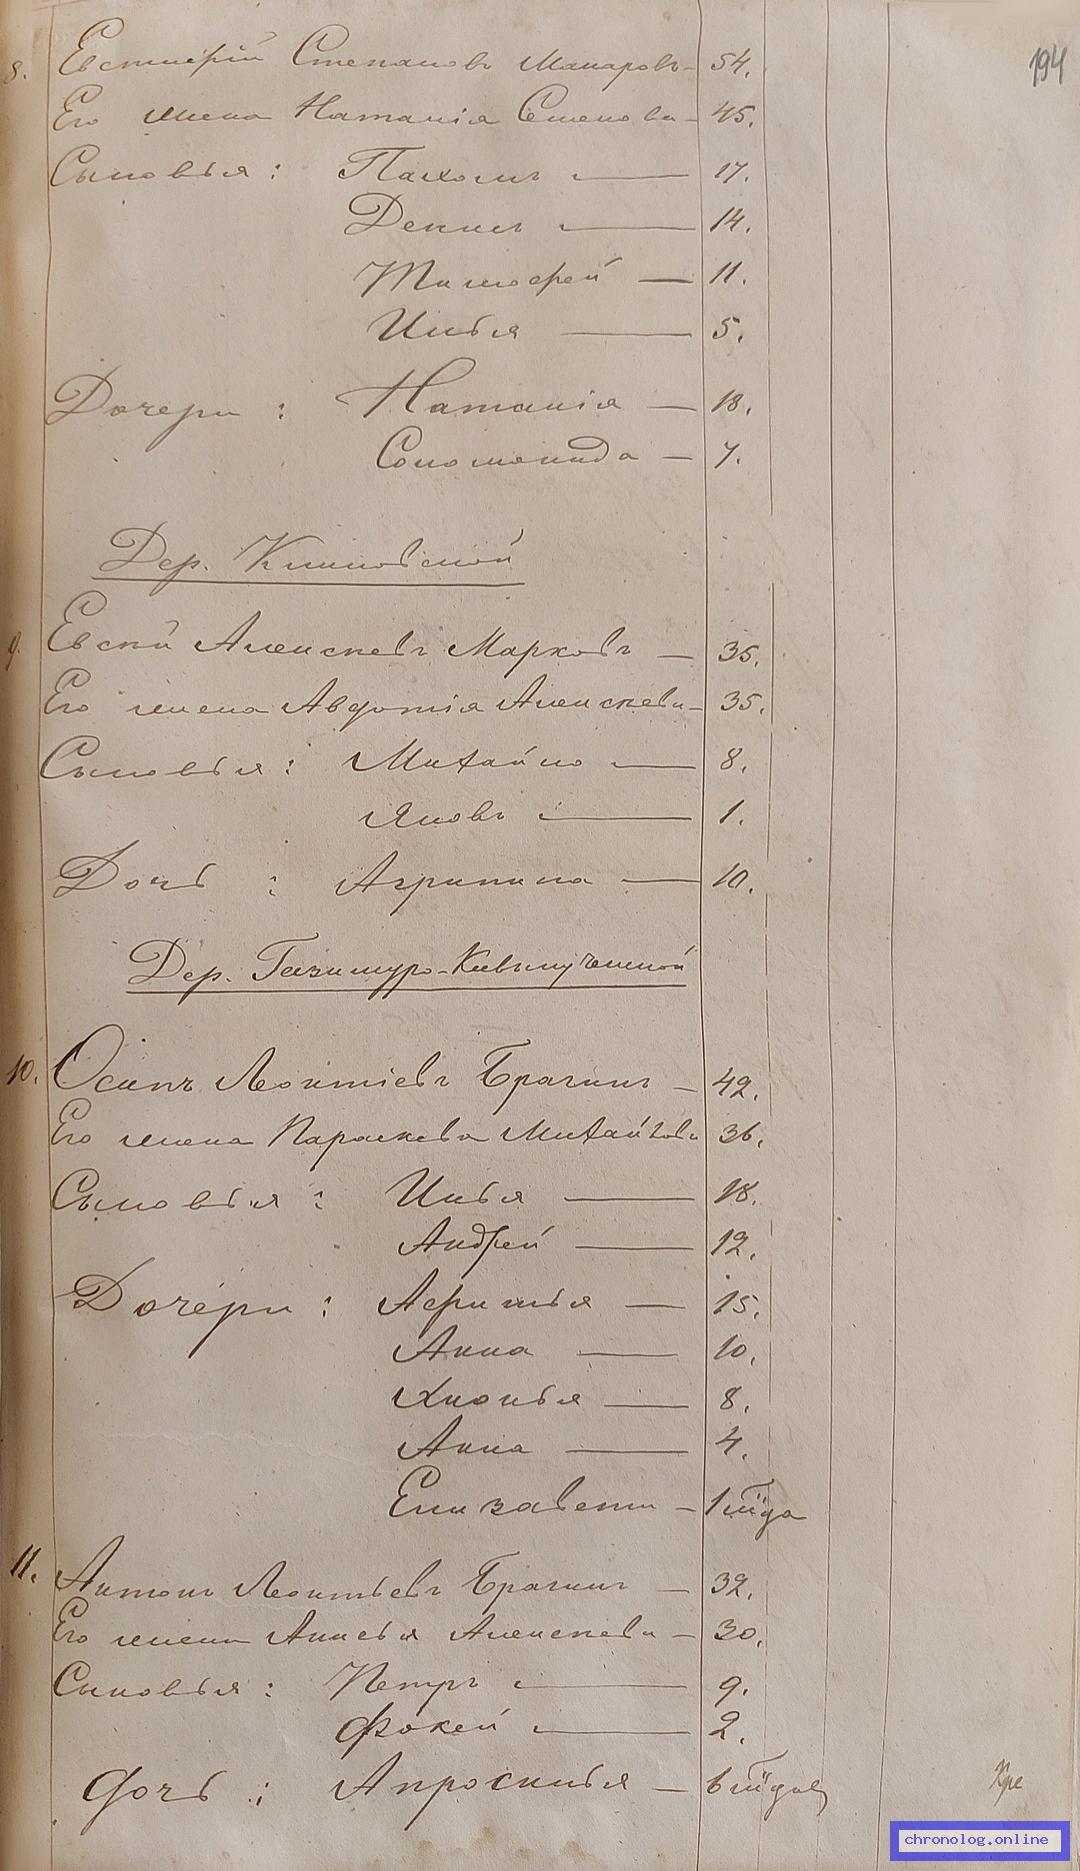 194
8. Евстигрій Степановъ Макаровъ - 54.
Его жена Наталія Семенова - 45.
Сыновья: Пахомъ — 17.
Денисъ — 14.
Тимофей — 11.
Илья — 5.
Дочери: Наталія — 18.
Соломонида — 7.
Дер.
9. Алексеевъ Марковъ — 35.
Его жена Авдотія Алексеева - 35.
Сыновья: Михайло — 8.
Яковъ — 1.
Дочь: Агрипина — 10.
Дер. Газимуро-
10. Осипъ Леонтіевъ Брагинъ — 42.
Его жена Параскева Михайлова 36.
Сыновья: Илья — 18.
Андрей — 12.
Дочери: Афимья — 15.
Анна — 10.
Хионья — 8.
Анна — 4.
Елизавета — 1 года
11. Антонъ Леонтьевъ Брагинъ — 32.
Его жена Анисья Алексеева — 30.
Сыновья: Петръ — 9.
Фокей — 2.
Дочь: Апросинья — 6
chronolog.online